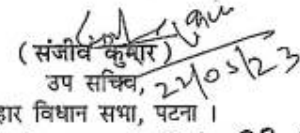 (संजीव कुमार)
उप सचिव, 22/05/23
हार विधान सभा, पटना ।